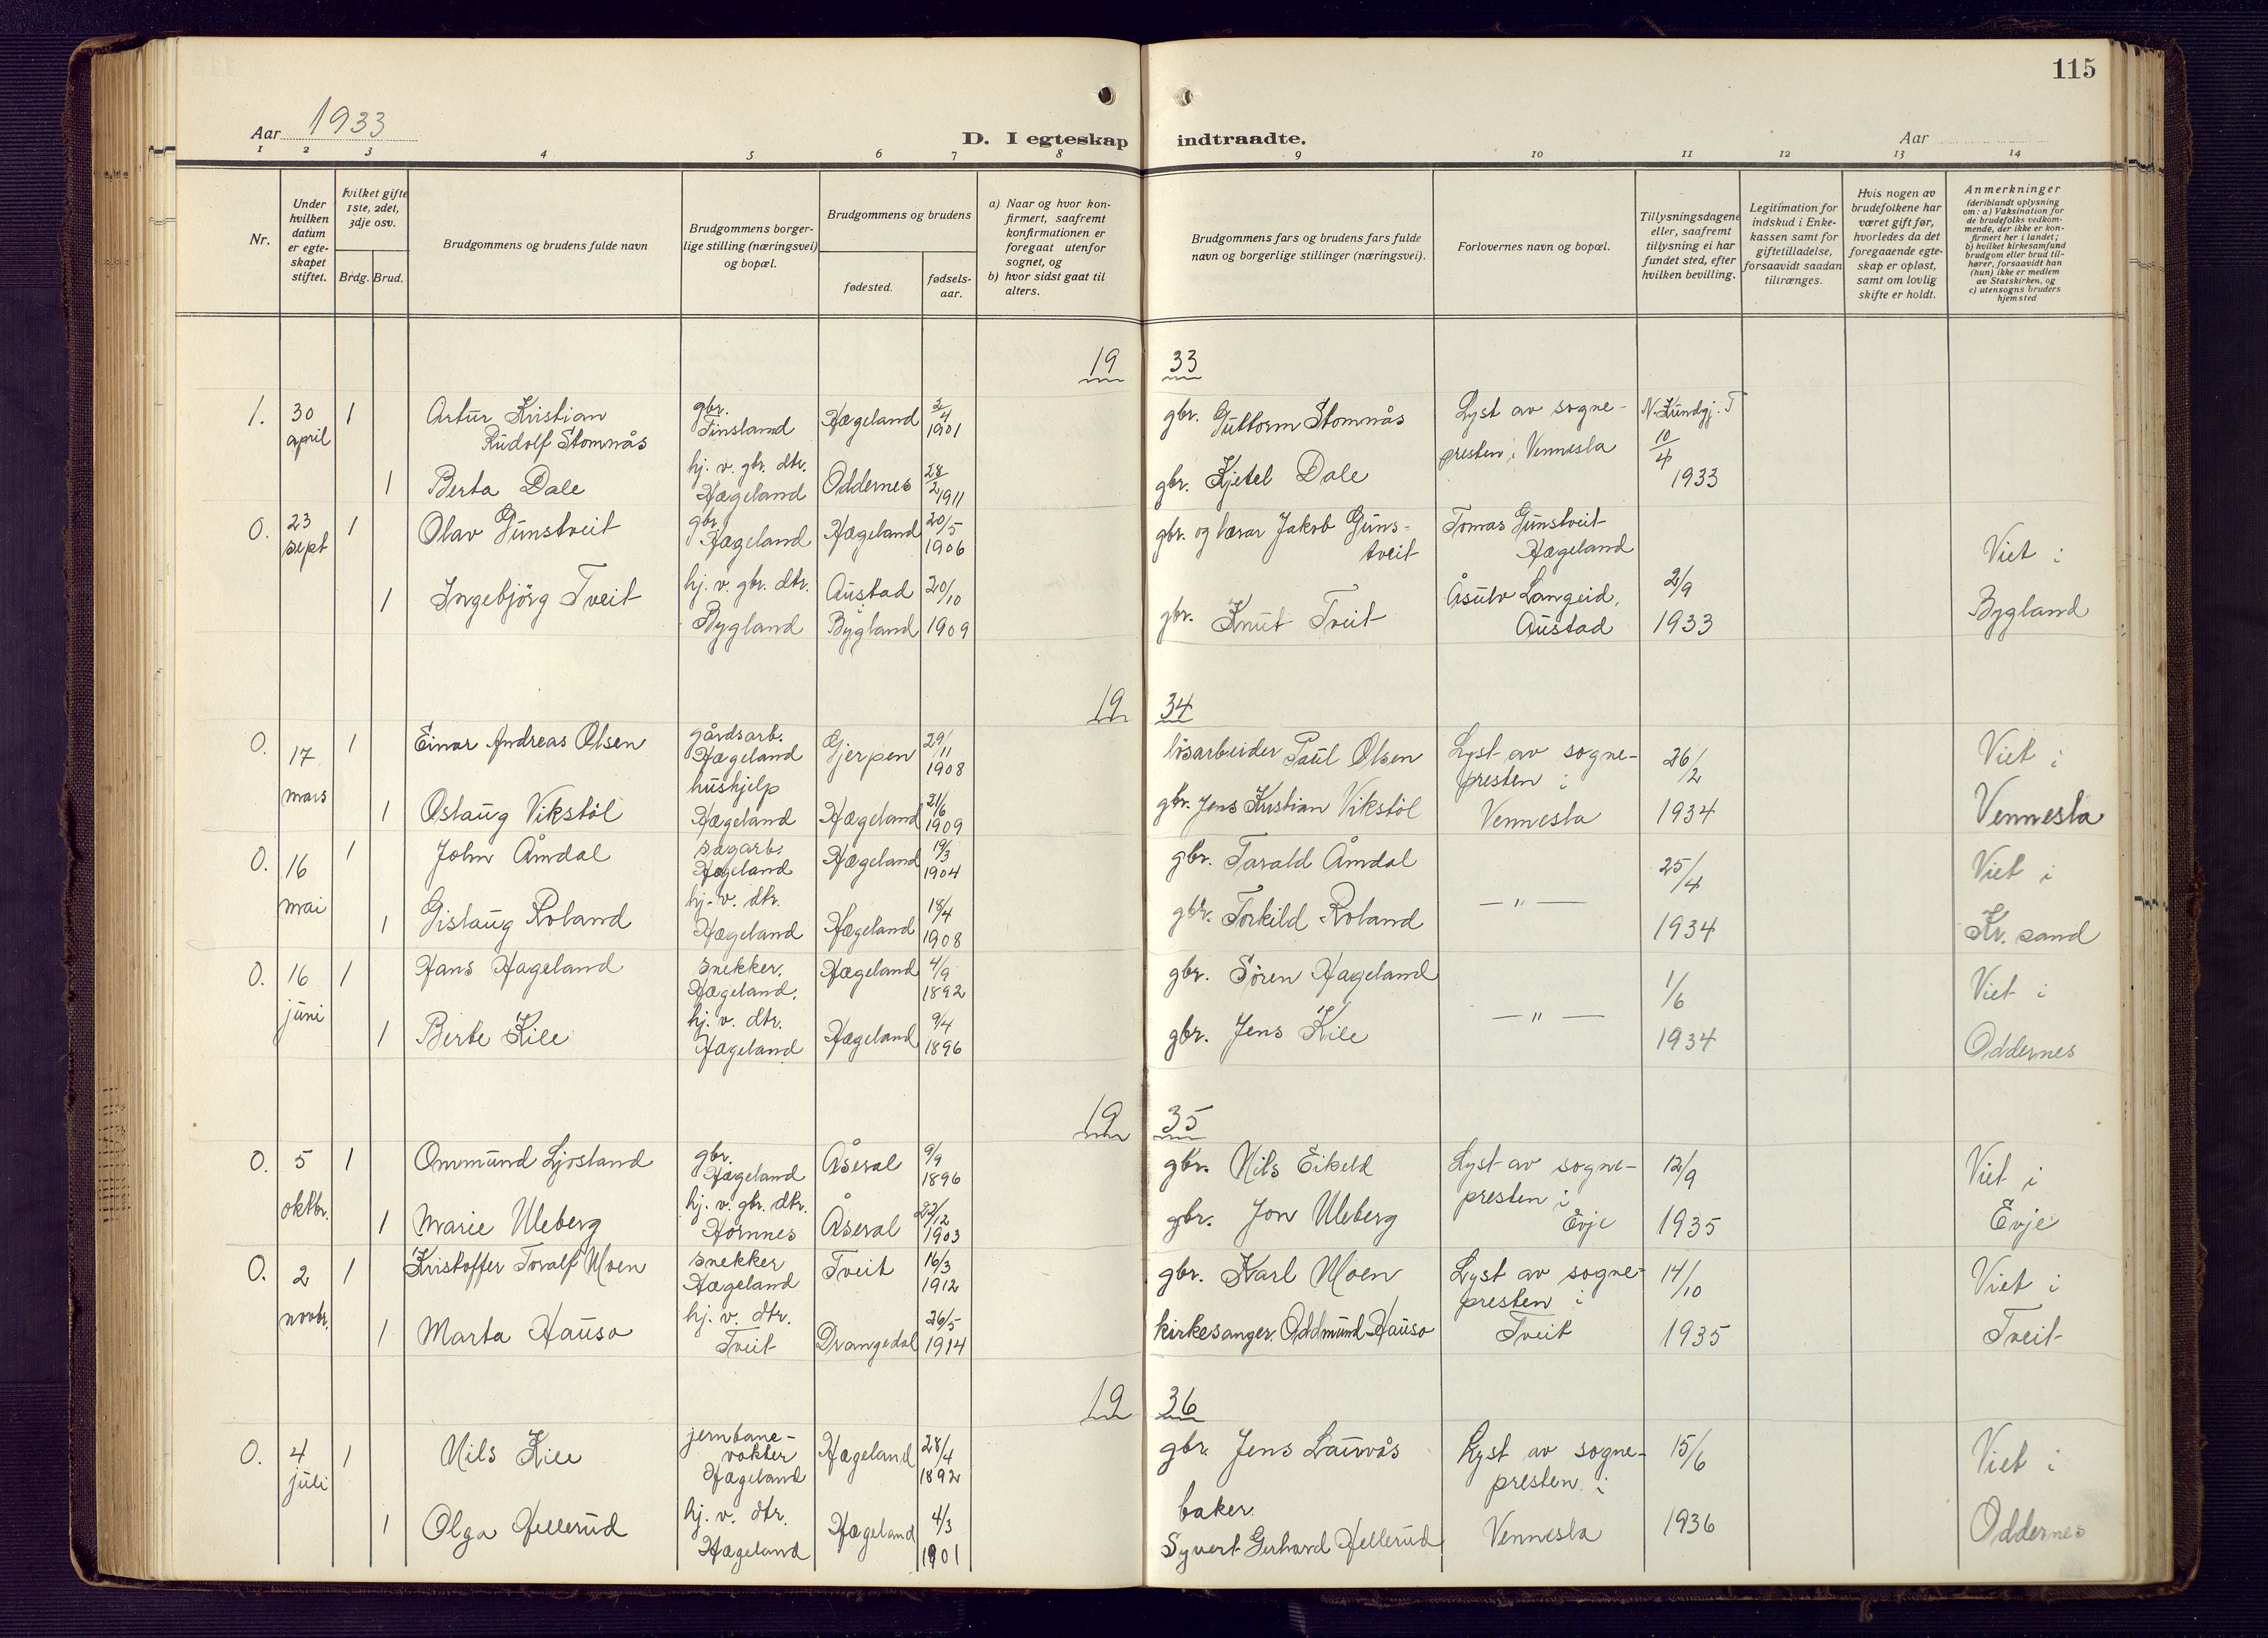 115
Aar 1933
D. I egteskap indtraadte.
Aar
1 2 3 4 5 6 7 8 9 10 11 12 13 14
Nr.
Under
hvilken
datum
er egte-
skapet
stiftet.
Hvilket gifte
1ste, 2det,
3dje osv.
Brdg. Brud.
Brudgommens og brudens fulde navn
Brudgommens borger-
lige stilling (næringsvei)
og bopæl.
Brudgommens og brudens
fødested.
fødsels-
aar.
a) Naar og hvor kon-
firmert, saafremt
konfirmationen er
foregaat utenfor
sognet, og
b) hvor sidst gaat til
alters.
Brudgommens fars og brudens fars fulde
navn og borgerlige stillinger (næringsvei).
Forlovernes navn og bopæl.
Tillysningsdagene
eller, saafremt
tillysning ei har
fundet sted, efter
hvilken bevilling.
Legitimation for
indskud i Enke-
kassen samt for
giftetilladelse,
forsaavidt saadan
tiltrænges.
Hvis nogen av
brudefolkene har
været gift før,
hvorledes da det
foregaaende egte-
skap er opløst,
samt om lovlig
skifte er holdt.
Anmerkninger
(deriblandt oplysning
om: a) Vaksination for
de brudefolks vedkom-
mende, der ikke er kon-
firmert her i landet;
b) hvilket kirkesamfund
brudgom eller brud til-
hører, forsaavidt han
(hun) ikke er medlem
av Statskirken, og
c) utensogns bruders
hjemsted
19 33
1. 30 april 1 Artur Kristian
Rudolf Stomnås
gbr.
Finsland
Hægeland
2/4
1901
gbr. Guttorm Stomnås
Lyst av sogne-
presten i Vennesla
N. Kundgj. T
10/4
1933
1 Berta Dale
hj. v. gbr. dtr.
Hægeland
Oddernes
28/2
1911
gbr. Kjetel Dale
0. 23 sept 1 Olav Gunstveit
gbr.
Hægeland
Hægeland
20/5
1906
gbr. og lærar Jakob Guns-
tveit
Tomas Gunstveit
Hægeland
Viet i
1 Ingebjörg Tveit
hj. v. gbr. dtr.
Bygland
Austad
Bygland
20/10
1909
gbr. Knut Tveit
Åsulv Langeid,
Austad
2/9
1933
Bygland
19 34
0. 17 mars 1 Einar Andreas Olsen
gårdsarb.
Hægeland
Gjerpen
29/11
1908
lösarbeider Paul Olsen
Lyst av sogne-
presten i
Vennesla
26/2
1934
Viet i
Vennesla
1 Oslaug Vikstöl
hushjelp
Hægeland
Hægeland
21/6
1909
gbr. Jens Kristian Vikstöl
0. 16 mai 1 John Åmdal
sagarb.
Hægeland
Hægeland
19/3
1904
gbr. Tarald Åmdal
— " —
25/4
1934
Viet i
Kr. sand
1 Gislaug Roland
hj. v. dtr.
Hægeland
Hægeland
18/4
1908
gbr. Torkild Roland
0. 16 juni 1 Hans Hageland
snekker.
Hægeland.
Hægeland
4/9
1892
gbr. Sören Hageland
— " —
1/6
1934
Viet i
Oddernes
1 Berte Kile
hj. v. dtr.
Hægeland
Hægeland
9/4
1896
gbr. Jens Kile
19 35
0. 5 oktbr. 1 Ommund Ljosland
gbr.
Hægeland
Åseral
9/9
1896
gbr. Nils Eikeld
Lyst av sogne-
presten i
Evje
12/9
1935
Viet i
Evje
1 Marie Uleberg
hj. v. gbr. dtr.
Hornnes
Åseral
22/12
1903
gbr. Jon Uleberg
0. 2 novbr. 1 Kristoffer Toralf Moen
snekker
Hægeland
Tveit
16/3
1912
gbr. Karl Moen
Lyst av sogne-
presten i
Tveit
14/10
1935
Viet i
Tveit
1 Marta Hauso
hj. v. dtr.
Tveit
Drangedal
26/5
1914
kirkesanger. Oddmund Hauso
19 36
0. 4 juli 1 Nils Kile
jernbane-
vokter
Hægeland
Hægeland
28/4
1892
gbr. Jens Lauvås
Lyst av sogne-
presten i
Vennesla
15/6
1936
Viet i
Oddernes
1 Olga Hellerud
hj. v. dtr.
Hægeland
Hægeland
4/3
1901
baker
Syvert Gerhard Hellerud